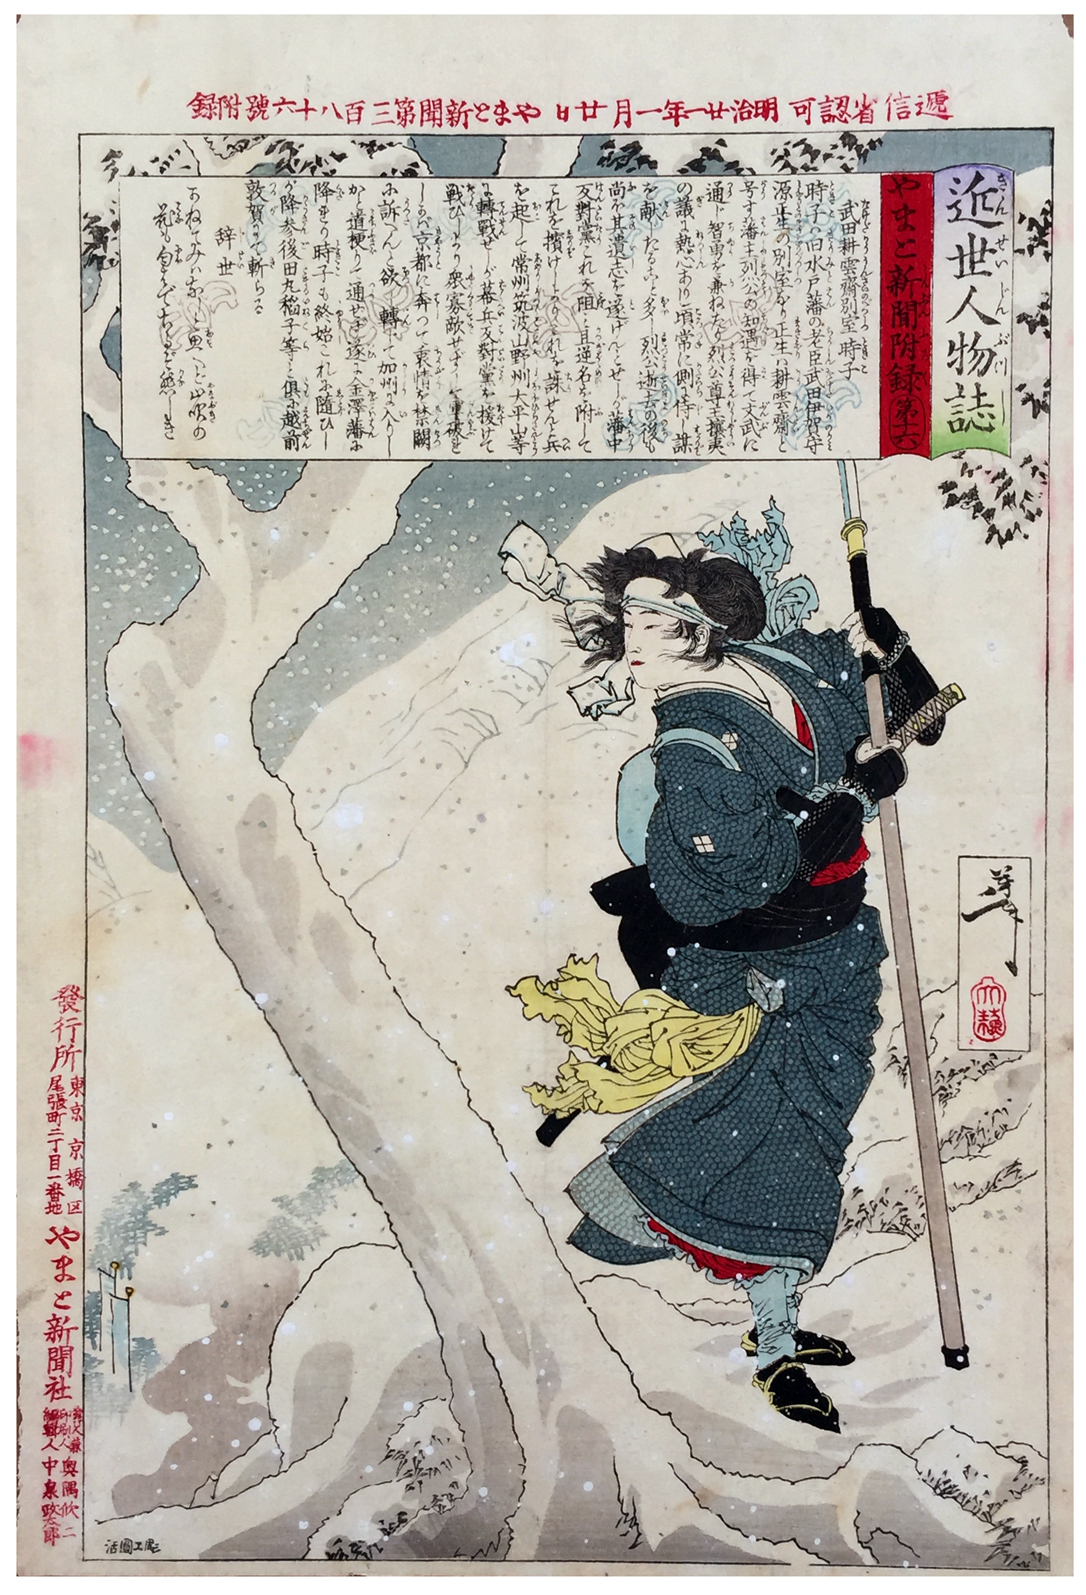 遞信省認可 明治廿一年一月廿日 やまと新聞第三百八十六號附録
近世人物誌
きんせいじんぶつし
やまと新聞附録 第十六
武田耕雲齋別室 時子
時子の旧水戸藩の老臣武田伊賀守
源正生の別室なり正生耕雲齋と
号す藩主列公の知遇を得て文武に
通じ智勇を兼ねたり列公尊王攘夷
の議に熱心あり頃常に側に侍し謀
を献じたること多し列公逝去の後も
尚を其遺志を遂げんとせしが藩中
反對黨これを阻し且逆名を附して
これを擯けしかバこれを誅せんと兵
を起して常州筑波山野州大平山等
に轉戰せしが幕兵反對黨を援けて
戰ひしより衆寡敵せずして重囲を
し京都に奔つて衷情を禁闕
に訴へんと欲し轉じて加州に入りし
から道梗りて通せず遂に金澤藩に
降れり時子も終始これに随ひし
が降参後田丸稲子等と倶に越前
敦賀にて斬らる
辞世
かねてみハなしと思へど山吹の
花も匂ハでちるぞ悲しき
芳年
大蘇
發行所 東京京橋区尾張町二丁目一番地 やまと新聞社
印刷人 奥隅欣二
編輯人 中泉政太郎
彫工圓活